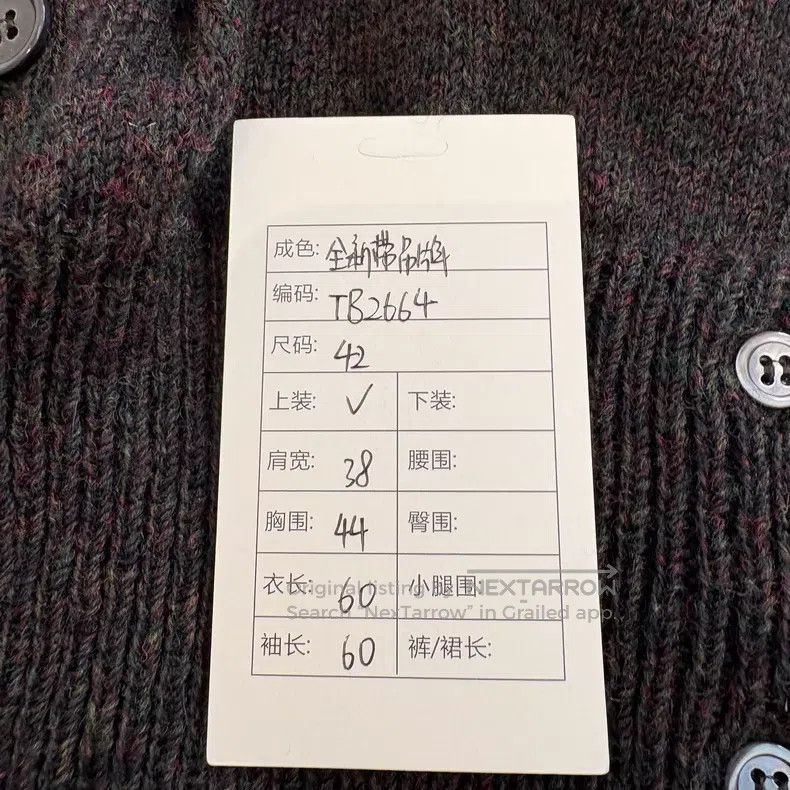 成色: 全新带吊牌
编码: TB2664
尺码: 42
上装: ✓ 下装:
肩宽: 38 腰围:
胸围: 44 臀围:
衣长: 60 小腿围:
Original listing by NEXTARROW
Search "NexTarrow" in Grailed app.
袖长: 60 裤/裙长: